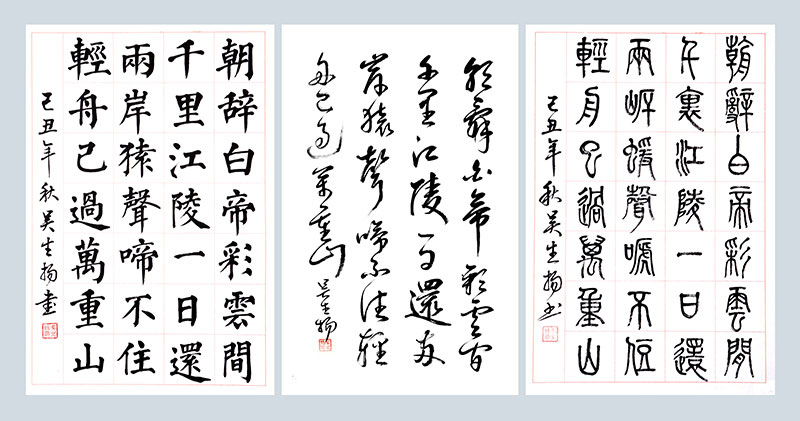 朝辞白帝彩雲間
千里江陵一日還
兩岸猿聲啼不住
輕舟已過萬重山
己丑年秋吴生揚書
朝辞白帝彩雲間
千里江陵一日還兩
岸猿聲啼不住輕
舟已過萬重山
吴生揚
朝辭白帝彩雲間
千里江陵一日還
兩岸猨聲嗁不住
輕舟已過萬重山
己丑年秋吴生揚书